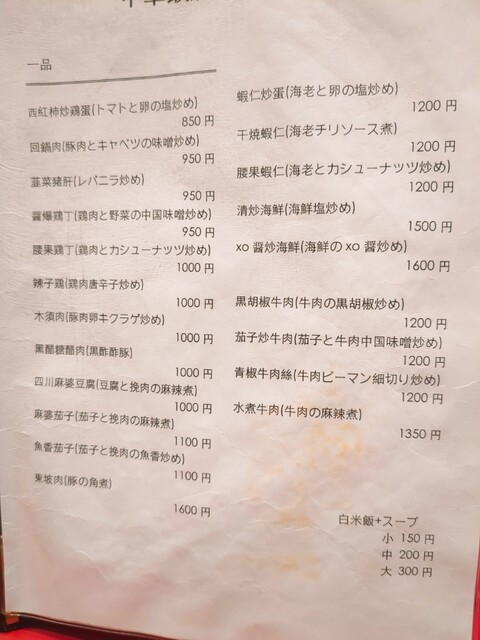 一品
西紅柿炒鶏蛋(トマトと卵の塩炒め)
850 円
回鍋肉(豚肉とキャベツの味噌炒め)
950 円
韮菜猪肝(レバニラ炒め)
950 円
醤爆鶏丁(鶏肉と野菜の中国味噌炒め)
950 円
腰果鶏丁(鶏肉とカシューナッツ炒め)
1000 円
辣子鶏(鶏肉唐辛子炒め)
1000 円
木須肉(豚肉卵キクラゲ炒め)
1000 円
黒醋糖醋肉(黒酢酢豚)
1000 円
四川麻婆豆腐(豆腐と挽肉の麻辣煮)
1000 円
麻婆茄子(茄子と挽肉の麻辣煮)
1100 円
魚香茄子(茄子と挽肉の魚香炒め)
1100 円
東坡肉(豚の角煮)
1600 円
蝦仁炒蛋(海老と卵の塩炒め)
1200 円
干焼蝦仁(海老チリソース煮)
1200 円
腰果蝦仁(海老とカシューナッツ炒め)
1200 円
清炒海鮮(海鮮塩炒め)
1500 円
xo 醤炒海鮮(海鮮のxo 醤炒め)
1600 円
黒胡椒牛肉(牛肉の黒胡椒炒め)
1200 円
茄子炒牛肉(茄子と牛肉中国味噌炒め)
1200 円
青椒牛肉絲(牛肉ピーマン細切り炒め)
1200 円
水煮牛肉(牛肉の麻辣煮)
1350 円
白米飯+スープ
小 150 円
中 200 円
大 300 円